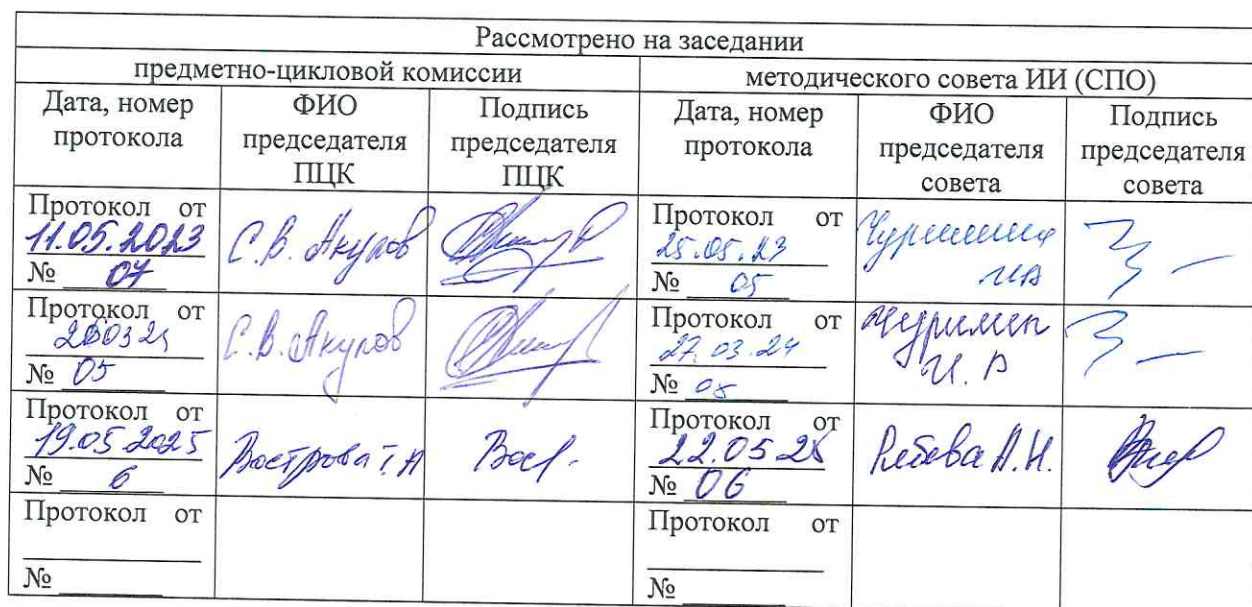 Рассмотрено на заседании
предметно-цикловой комиссии
методического совета ИИ (СПО)
Дата, номер протокола
ФИО председателя ПЦК
Подпись председателя ПЦК
Дата, номер протокола
ФИО председателя совета
Подпись председателя совета
Протокол от
11.05.2023
№ 07
С.В. Акулов
Протокол от
25.05.23
№ 05
Протокол от
№ 05
С.В. Акулов
Протокол от
27.03.24
№
Протокол от
19.05.2025
№ 6
Вострова Т.А
Протокол от
22.05.25
№ 06
А.Н.
Протокол от
№
Протокол от
№